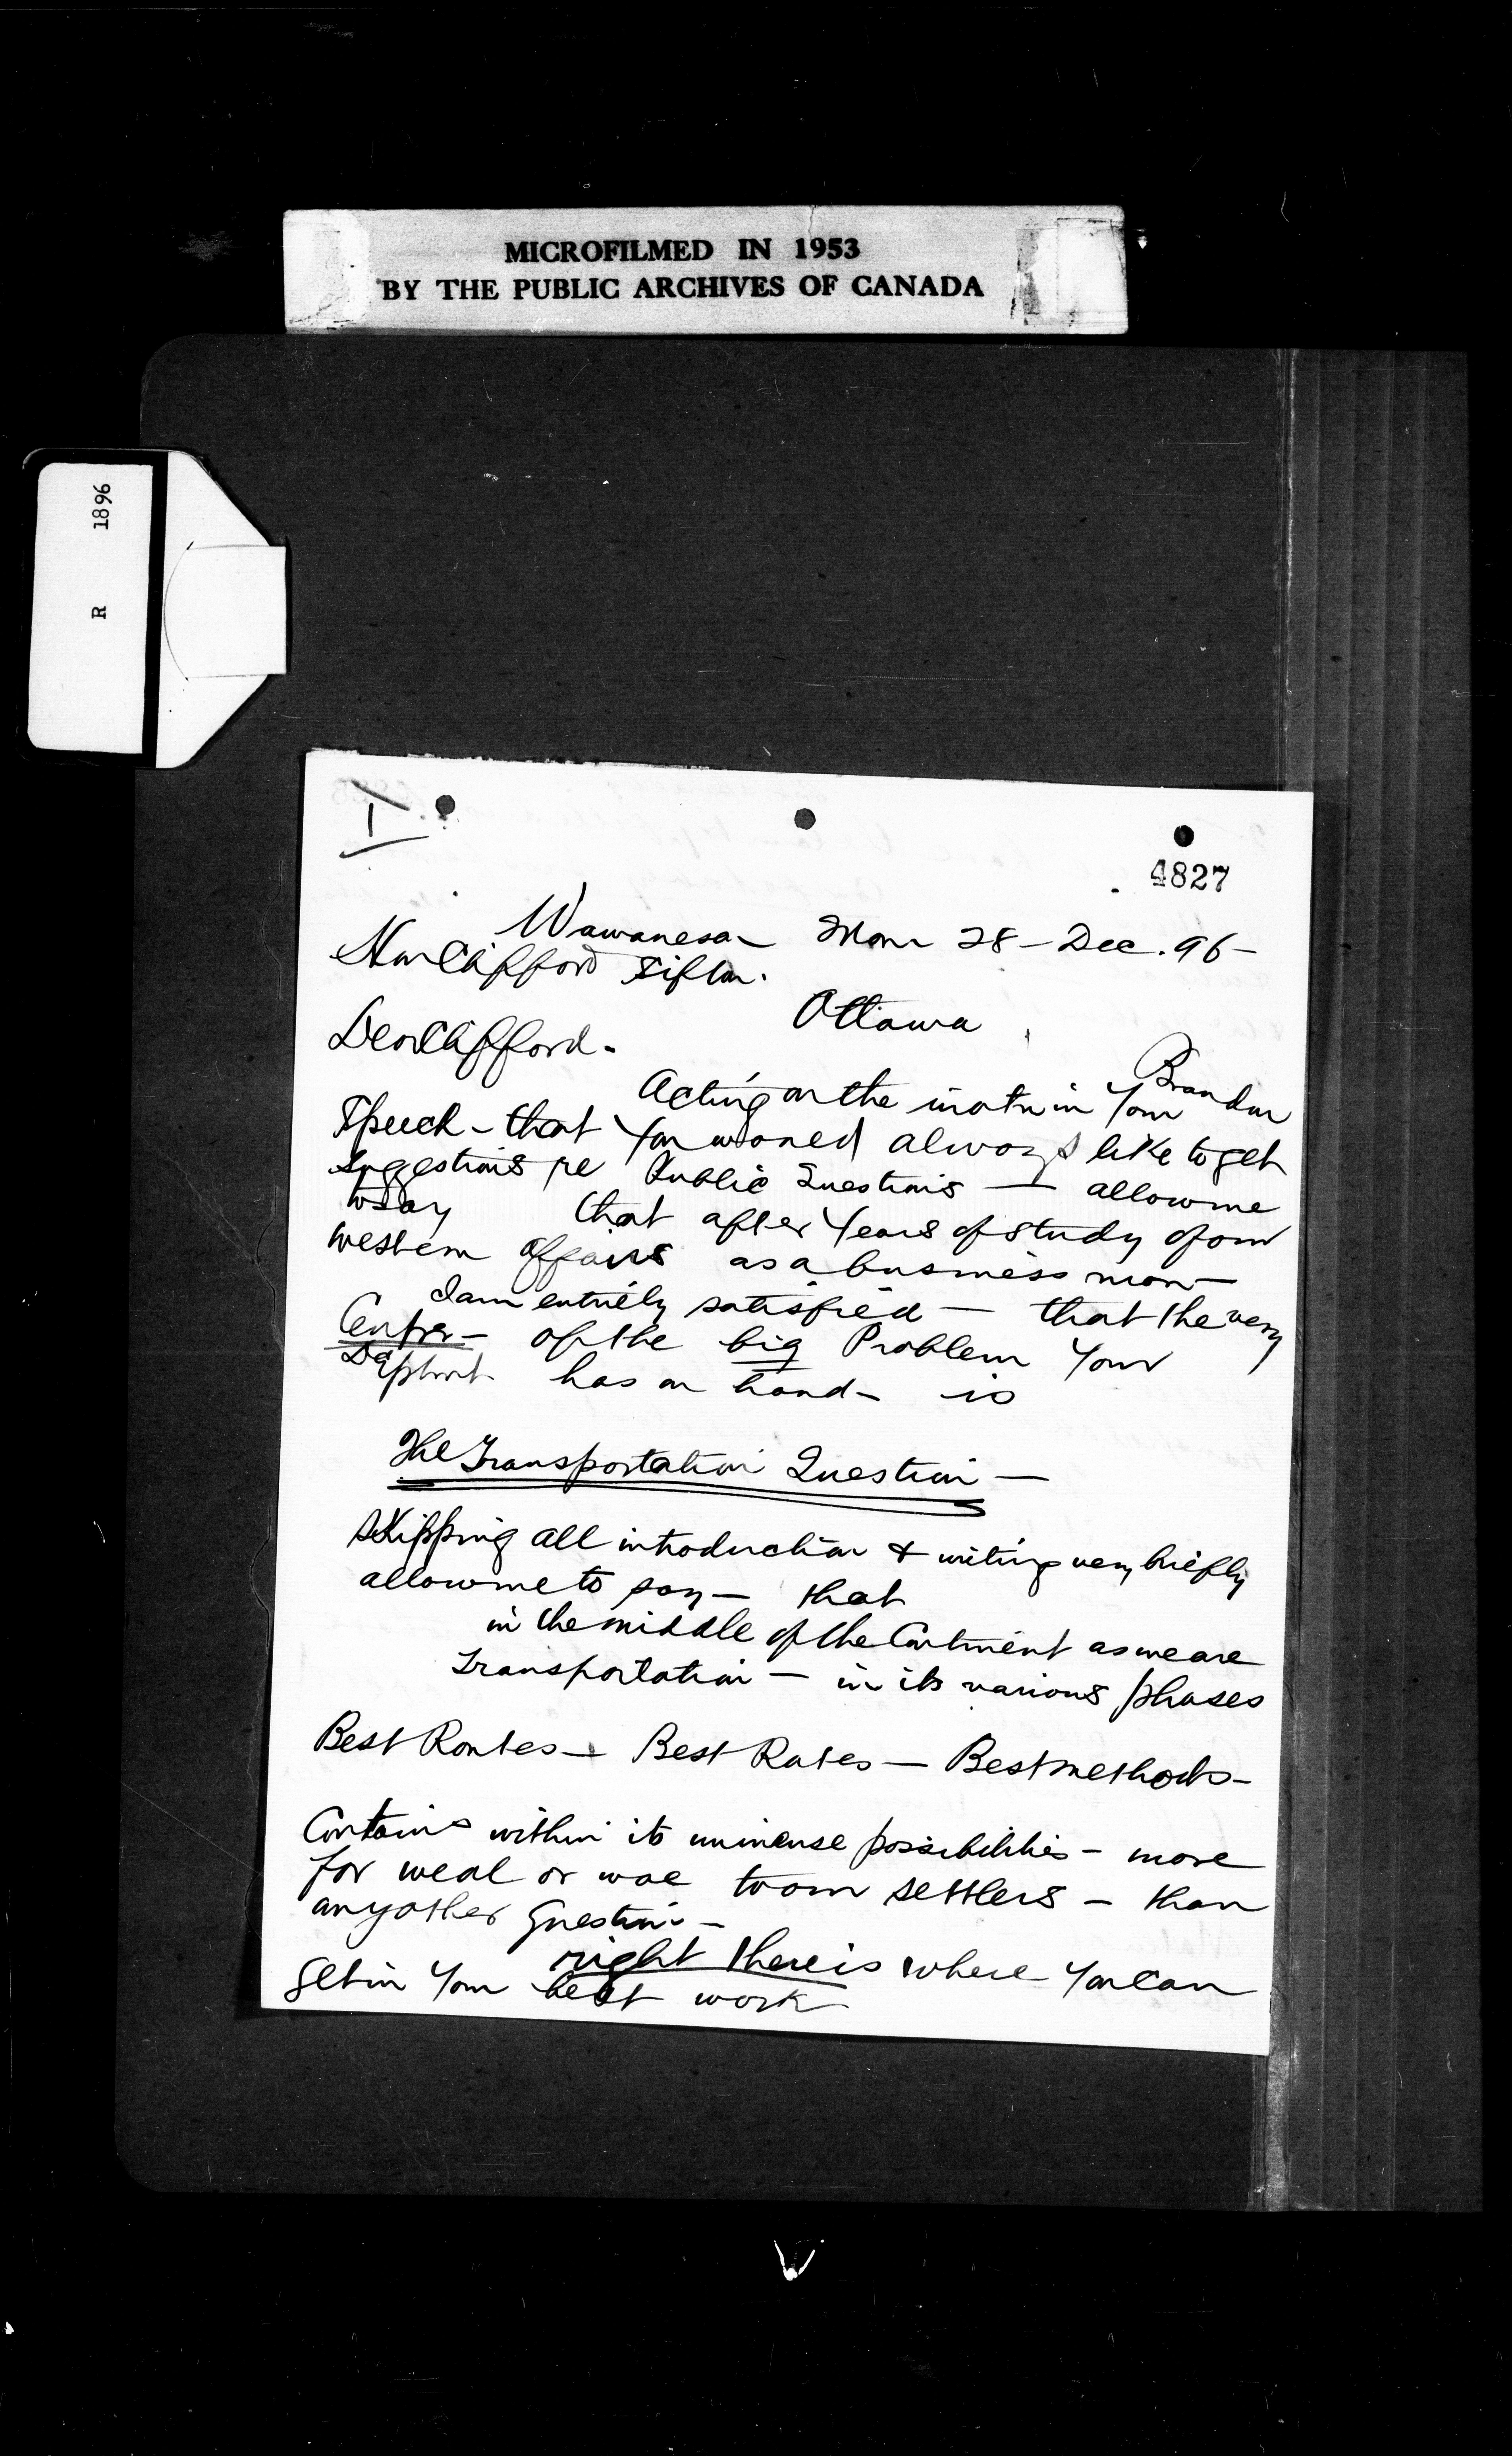 MICROFILMED IN 1953
BY THE PUBLIC ARCHIVES OF CANADA
R 1896
I
4827
Wawanesa Mon 28 - Dec. 96 -
Hon Clifford Sifton.
Ottawa
Dear Clifford -
Acting on the in your Brandon
Speech - that you would always like to get
suggestions re Public Questions — allow me
to say that after years of study of our
western affairs as a business man —
I am entirely satisfied — that the very
Centre - of the big Problem your
Deptmt has on hand - is
The Transportation Question —
Skipping all introduction & writing very briefly
allow me to say — that
in the middle of the Continent as we are
Transportation — in its various phases
Best Routes — Best Rates — Best methods -
Contains within its immense possibilities - more
for weal or woe to our settlers - than
any other Question -
right there is where you can
get in your best work